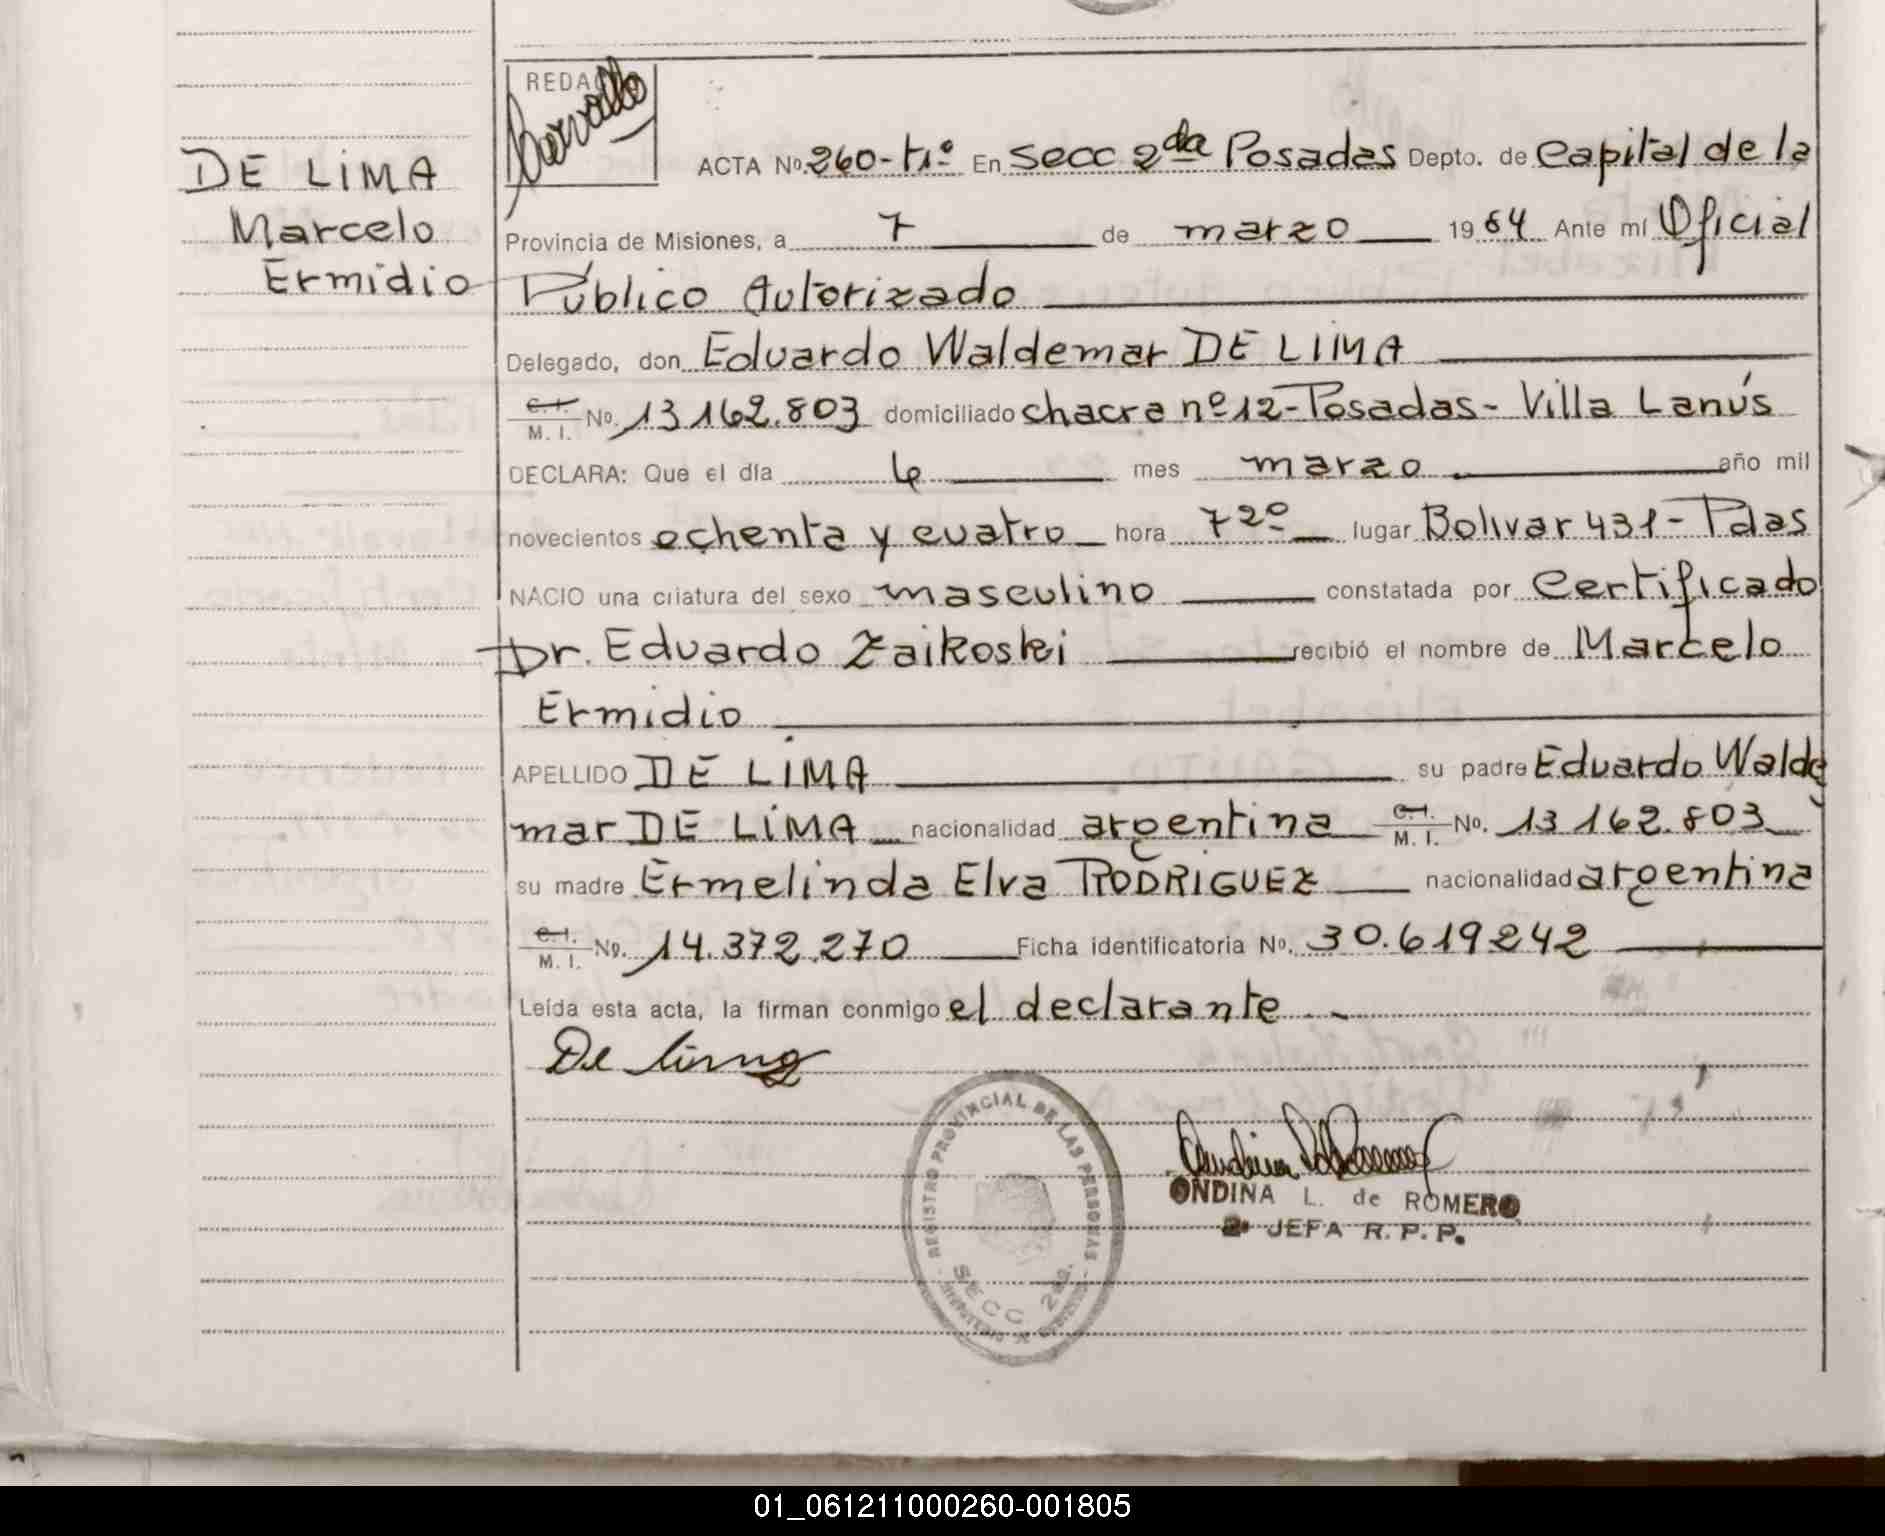 DE LIMA
Marcelo
Ermidio
REDAC
Carvallo
ACTA Nº 260-tº1º En secc 2da Posadas Depto. de Capital de la
Provincia de Misiones, a 7 de marzo 1984 Ante mí Oficial
Público Autorizado
Delegado, don Eduardo Waldemar DE LIMA
C. I. M. I. No. 13 162.803 domiciliado chacra nº 12 - Posadas - Villa Lanús
DECLARA: Que el día 6 mes marzo año mil
novecientos ochenta y cuatro hora 7 20 lugar Bolivar 431 - Pdas
NACIO una criatura del sexo masculino constatada por Certificado
Dr. Eduardo Zaikoski recibió el nombre de Marcelo
Ermidio
APELLIDO DE LIMA su padre Eduardo Walde
mar DE LIMA nacionalidad argentina C. I. M. I. No. 13 162.803
su madre Ermelinda Elva RODRIGUEZ nacionalidad argentina
C. I. M. I. No. 14.372.270 Ficha identificatoria No. 30.619242
Leída esta acta, la firman conmigo el declarante
De Lima
REGISTRO PROVINCIAL DE LAS PERSONAS
SECC 2da.
ONDINA L. de ROMERO
2ª JEFA R. P. P.
01_061211000260-001805